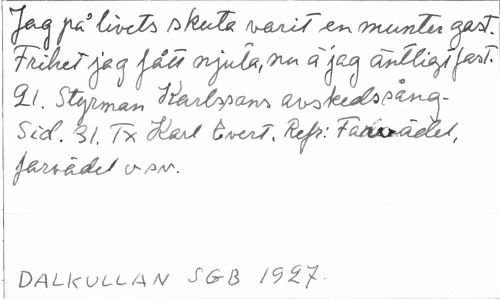 Jag på livets skuta varit en munter gast.
Frihet jag fått njuta, nu ä jag äntligt fast.
21. Styrman Karlssons avskedssång.
Sid. 31. Tx Karl Evert. Refr: Farvädel,
farvädel osv.
DALKULLAN SGB 1927.